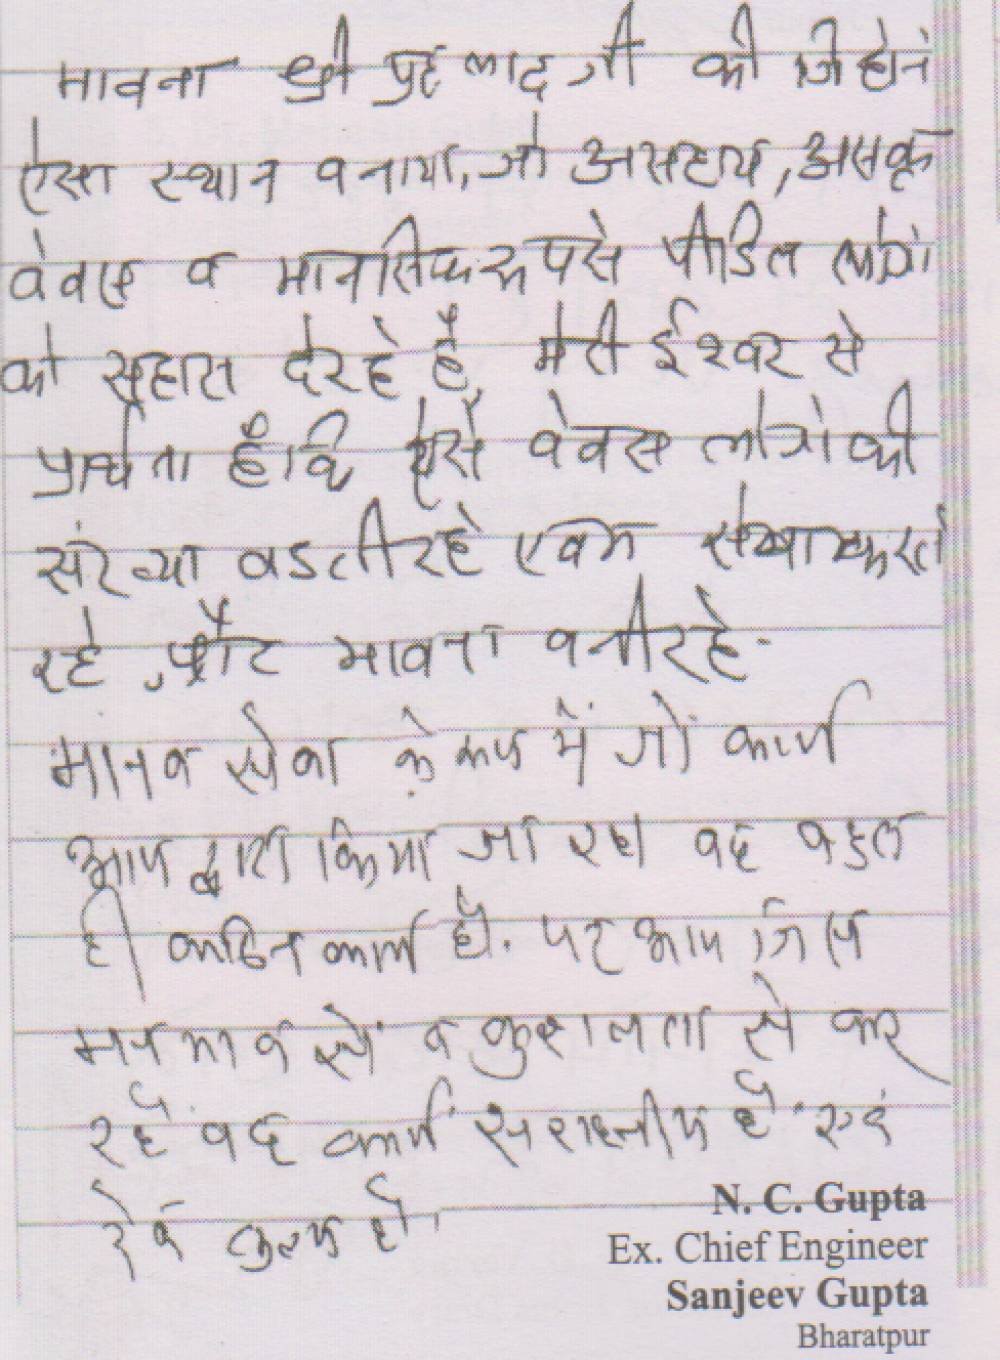 भावना श्री प्रहलाद जी की जिन्होंने
ऐसा स्थान बनाया, जो असहाय, असक्
वेवस व मानसिक रूप से पीडित लोगो
को सहारा दे रहे है, मेरी ईश्वर से
प्रार्थना है कि ऐसे वेवस लोगो की
संख्या वडती रहे एवम करते
रहे, और भावना वनी रहे.
मानव सेवा के रूप में जो कार्य
आप द्वारा किया जा रहा वह वहुत
ही कठिन कार्य है. पर आप जिस
व कुशलता से कर
रहे वह कार्य सराहनीय है एवं
है।
N. C. Gupta
Ex. Chief Engineer
Sanjeev Gupta
Bharatpur